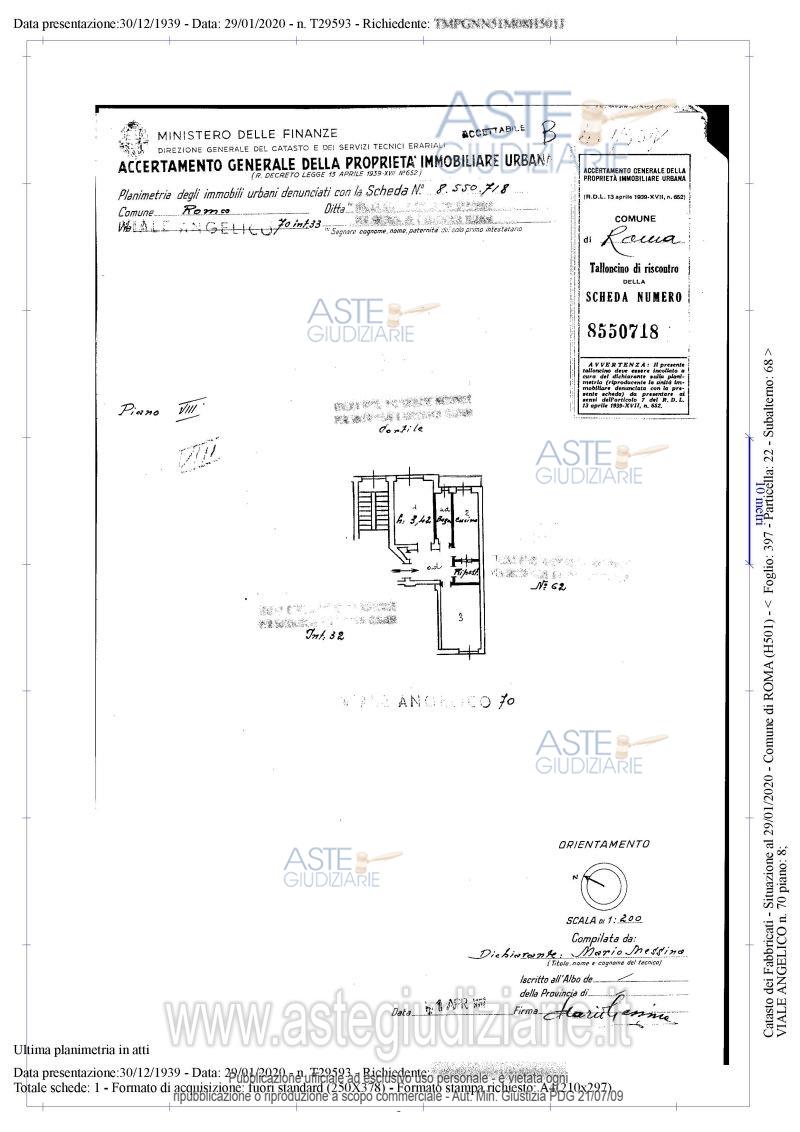 Data presentazione:30/12/1939 - Data: 29/01/2020 - n. T29593 - Richiedente:
ASTE
GIUDIZIARIE
ACCETTABILE B
MINISTERO DELLE FINANZE
DIREZIONE GENERALE DEL CATASTO E DEI SERVIZI TECNICI ERARIALI
ACCERTAMENTO GENERALE DELLA PROPRIETA' IMMOBILIARE URBANA
(R. DECRETO LEGGE 13 APRILE 1939-XVII N° 652)
Planimetria degli immobili urbani denunciati con la Scheda N° 8.550.718
Comune Roma Ditta
Via VIALE ANGELICO 70 int. 33
Segnare cognome, nome, paternità del solo primo intestatario
ACCERTAMENTO GENERALE DELLA
PROPRIETÀ IMMOBILIARE URBANA
(R.D.L. 13 aprile 1939-XVII, n. 652)
COMUNE
di Roma
Talloncino di riscontro
DELLA
SCHEDA NUMERO
8550718
AVVERTENZA: Il presente
talloncino deve essere incollato a
cura del dichiarante sulla plani-
metria (riproducente la unità im-
mobiliare denunciata con la pre-
sente scheda) da presentare ai
sensi dell'articolo 7 del R. D. L.
13 aprile 1939-XVII, n. 652.
ASTE
GIUDIZIARIE
Piano VIII
VIII
Cortile
ASTE
GIUDIZIARIE
1
h: 3,42
Bagno
2
Cucina
Ripost.
3
N° 62
Int. 32
VIALE ANGELICO 70
ASTE
GIUDIZIARIE
ASTE
GIUDIZIARIE
ORIENTAMENTO
N
SCALA DI 1: 200
Compilata da:
Dichiarante: Mario Messina
(Titolo, nome e cognome del tecnico)
Iscritto all'Albo de
della Provincia di
Data 1 APR Firma
www.astegiudiziarie.it
10 metri
Catasto dei Fabbricati - Situazione al 29/01/2020 - Comune di ROMA (H501) - < Foglio: 397 - Particella: 22 - Subalterno: 68 >
VIALE ANGELICO n. 70 piano: 8;
Ultima planimetria in atti
Data presentazione:30/12/1939 - Data: 29/01/2020 - n. T29593 - Richiedente:
Totale schede: 1 - Formato di acquisizione: fuori standard (250X378) - Formato stampa richiesto: A4(210x297)
Pubblicazione ufficiale ad esclusivo uso personale - è vietata ogni
ripubblicazione o riproduzione a scopo commerciale - Aut. Min. Giustizia PDG 21/07/09